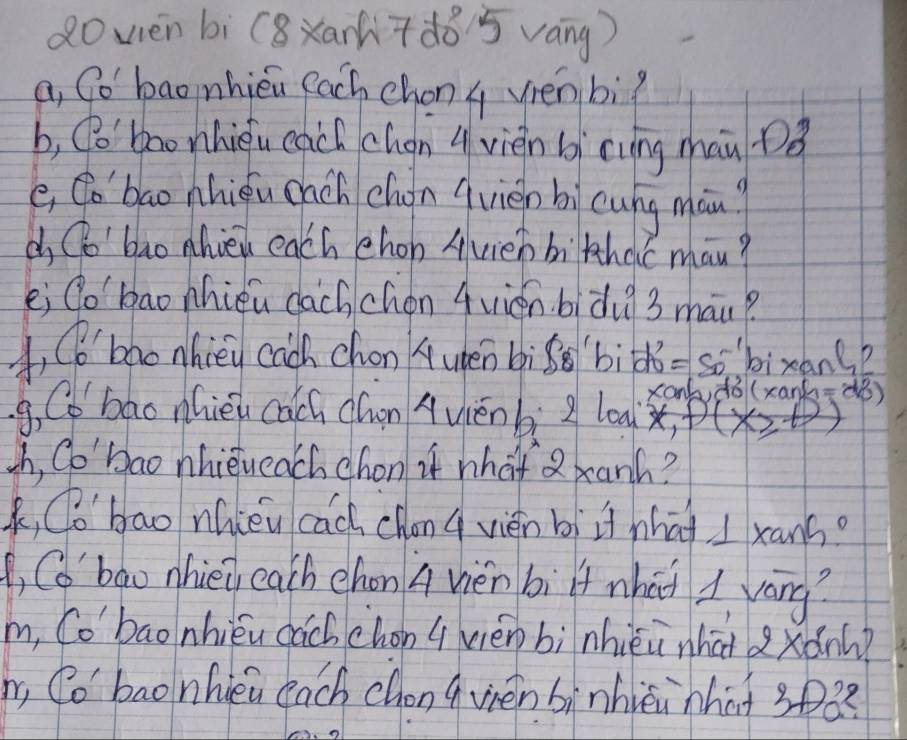 20 viên bi (8 xanh 7 đỏ 5 vàng)
a, Có bao nhiêu cách chọn 4 viên bi?
b, Có bao nhiêu cách chọn 4 viên bi cùng màu Đỏ
c, Có bao nhiêu cách chọn 4 viên bi cùng màu?
d, Có bao nhiêu cách chọn 4 viên bi khác màu?
e, Có bao nhiêu cách chọn 4 viên bi đủ 3 màu?
f, Có bao nhiêu cách chọn 4 viên bi số bi đỏ = số bi xanh?
xanh, đỏ (xanh = đỏ)
g, Có bao nhiêu cách chọn 4 viên bi 2 loại X, Đ (X ≥ Đ)
h, Có bao nhiêu cách chọn ít nhất 2 xanh?
k, Có bao nhiêu cách chọn 4 viên bi ít nhất 1 xanh?
l, Có bao nhiêu cách chọn 4 viên bi ít nhất 1 vàng?
m, Có bao nhiêu cách chọn 4 viên bi nhiều nhất 2 xanh?
n, Có bao nhiêu cách chọn 4 viên bi nhiều nhất 3 Đỏ?